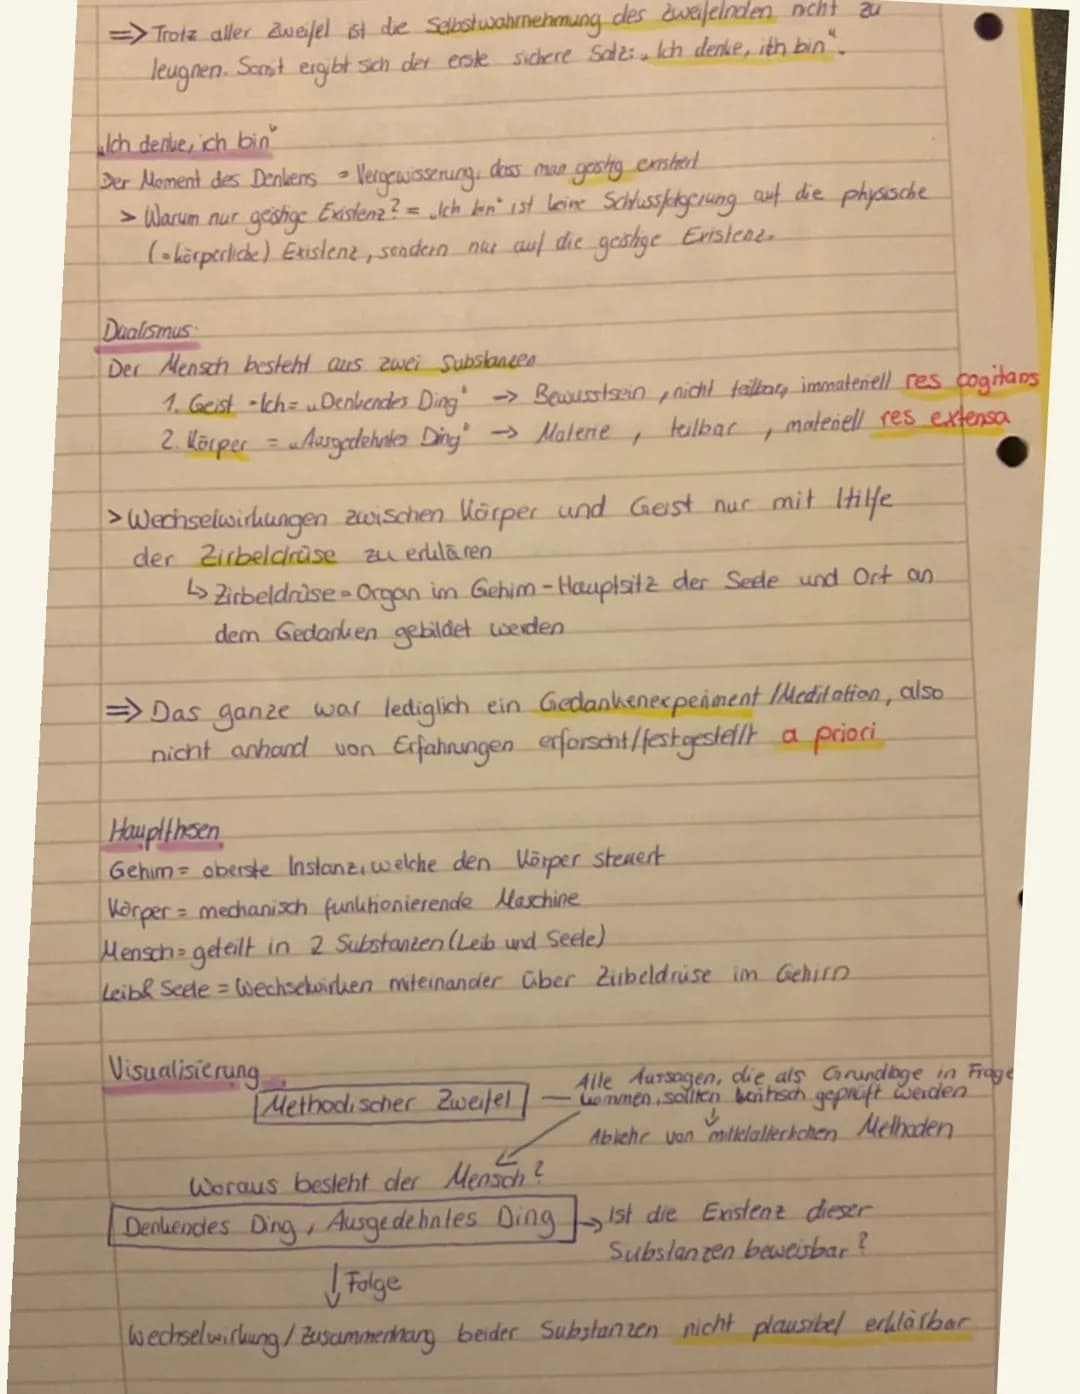 => Trotz aller Zweifel ist die Selbstwahrnehmung des Zweifelnden nicht zu
leugnen. Somit ergibt sich der erste sichere Satz: „Ich denke, ich bin".
„Ich denke, ich bin"
Der Moment des Denkens = Vergewisserung, dass man geistig existiert
> Warum nur geistige Existenz? = „Ich bin" ist keine Schlussfolgerung auf die physische
(=körperliche) Existenz, sondern nur auf die geistige Existenz.
Dualismus:
Der Mensch besteht aus zwei Substanzen
1. Geist -Ich= „Denkendes Ding" -> Bewusstsein, nicht teilbar, immateriell res cogitans
2. Körper = „Ausgedehntes Ding" -> Materie, teilbar, materiell res extensa
> Wechselwirkungen zwischen Körper und Geist nur mit Hilfe
der Zirbeldrüse zu erklären
↳ Zirbeldrüse = Organ im Gehirn - Hauptsitz der Seele und Ort an
dem Gedanken gebildet werden
=> Das ganze war lediglich ein Gedankenexperiment /Meditation, also
nicht anhand von Erfahrungen erforscht/festgestellt a priori
Hauptthesen
Gehirn = oberste Instanz, welche den Körper steuert
Körper = mechanisch funktionierende Maschine
Mensch = geteilt in 2 Substanzen (Leib und Seele)
Leib & Seele = Wechselwirken miteinander über Zirbeldrüse im Gehirn
Visualisierung
Methodischer Zweifel — Alle Aussagen, die als Grundlage in Frage
kommen, sollten kritisch geprüft werden
↓
Abkehr von mittelalterlichen Methoden
Woraus besteht der Mensch?
Denkendes Ding, Ausgedehntes Ding -> Ist die Existenz dieser
Substanzen beweisbar?
↓ Folge
Wechselwirkung / Zusammenhang beider Substanzen nicht plausibel erklärbar